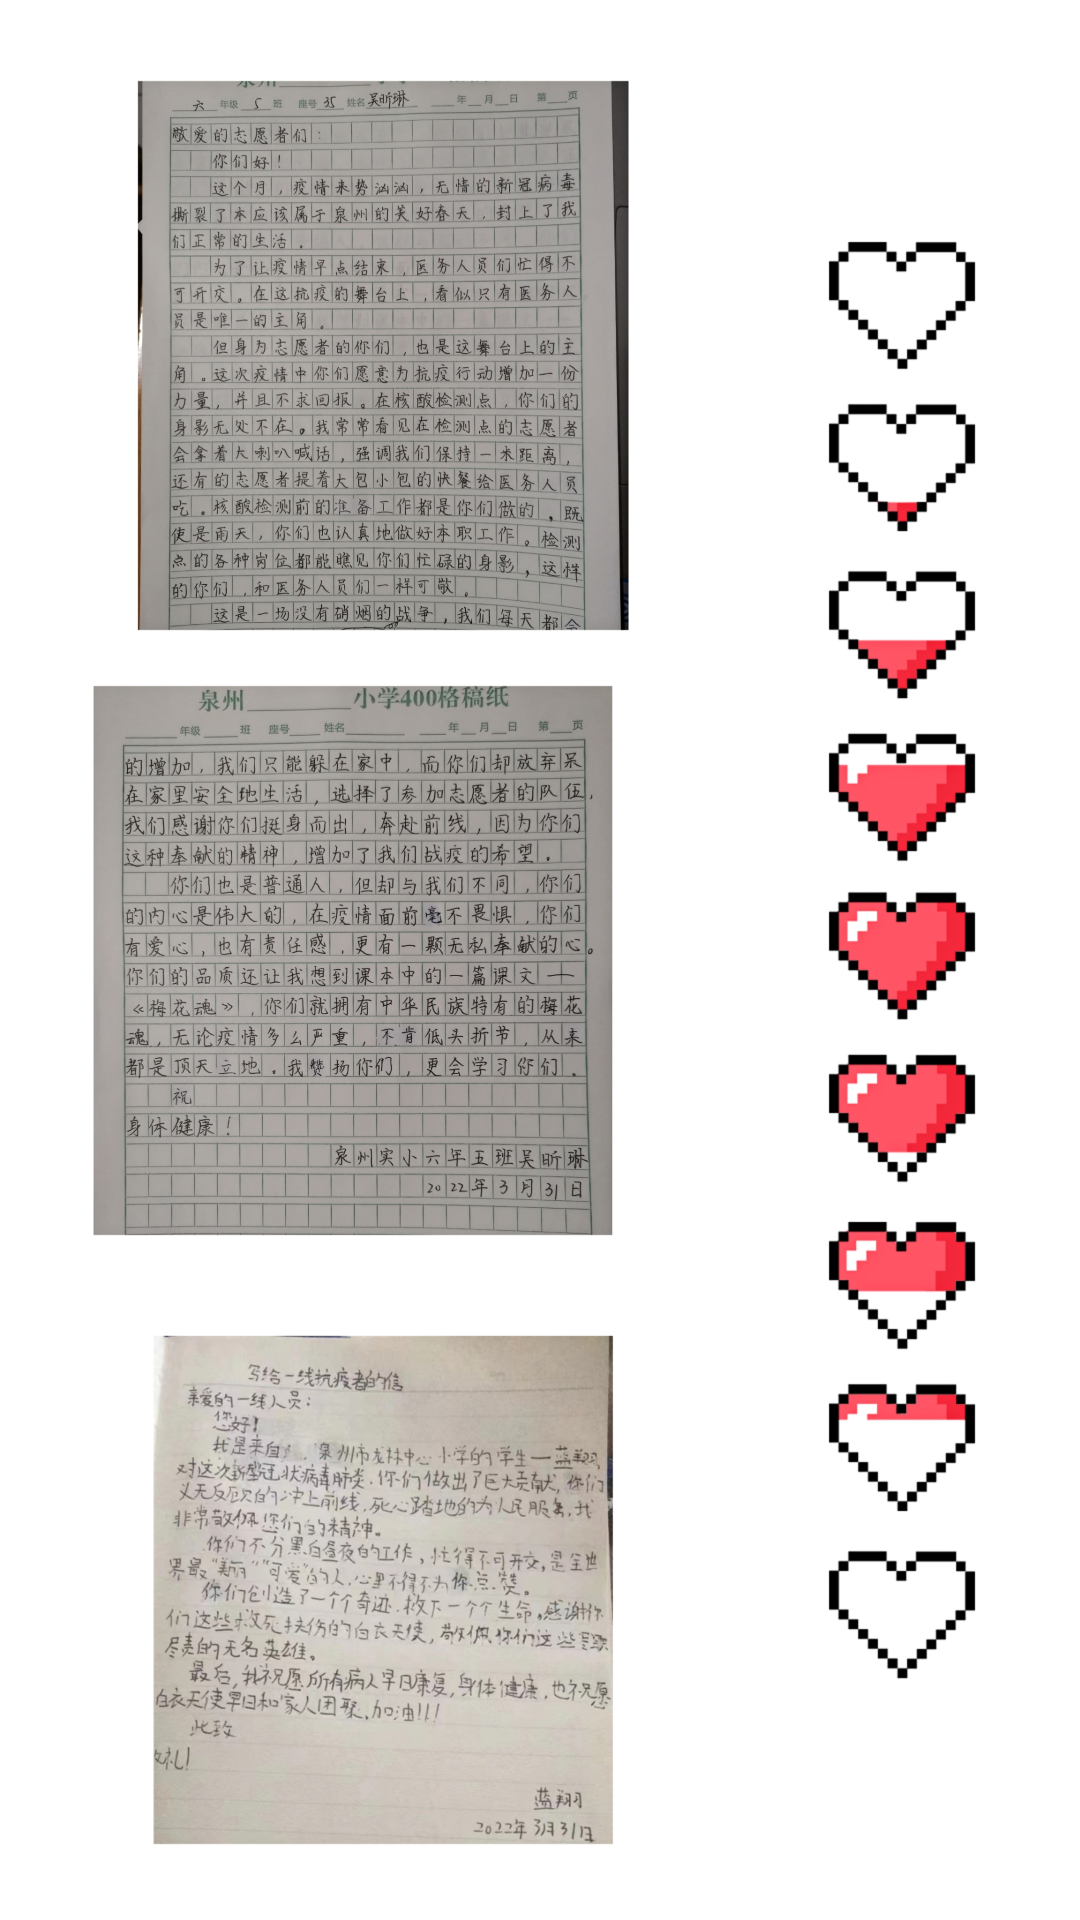 六年级 5 班 座号 35 姓名 吴昕琳 年 月 日 第 页
敬爱的志愿者们:
你们好!
这个月,疫情来势汹汹,无情的新冠病毒
撕裂了本应该属于泉州的美好春天,封上了我
们正常的生活。
为了让疫情早点结束,医务人员们忙得不
可开交。在这抗疫的舞台上,看似只有医务人
员是唯一的主角。
但身为志愿者的你们,也是这舞台上的主
角。这次疫情中你们愿意为抗疫行动增加一份
力量,并且不求回报。在核酸检测点,你们的
身影无处不在。我常常看见在检测点的志愿者
会拿着大喇叭喊话,强调我们保持一米距离,
还有的志愿者提着大包小包的快餐给医务人员
吃。核酸检测前的准备工作都是你们做的。既
使是雨天,你们也认真地做好本职工作。检测
点的各种岗位都能瞧见你们忙碌的身影,这样
的你们,和医务人员们一样可敬。
这是一场没有硝烟的战争,我们每天都会
泉州 小学400格稿纸
年级 班 座号 姓名 年 月 日 第 页
的增加,我们只能躲在家中,而你们却放弃呆
在家里安全地生活,选择了参加志愿者的队伍,
我们感谢你们挺身而出,奔赴前线,因为你们
这种奉献的精神,增加了我们战疫的希望。
你们也是普通人,但却与我们不同,你们
的内心是伟大的,在疫情面前毫不畏惧,你们
有爱心,也有责任感,更有一颗无私奉献的心。
你们的品质还让我想到课本中的一篇课文——
《梅花魂》,你们就拥有中华民族特有的梅花
魂,无论疫情多么严重,不肯低头折节,从来
都是顶天立地。我赞扬你们,更会学习你们。
祝
身体健康!
泉州实小六年五班吴昕琳
2022年3月31日
写给一线抗疫者的信
亲爱的一线人员:
您好!
我是来自 泉州市龙林中心小学的学生—蓝翔,
对这次新型冠状病毒肺炎,你们做出了巨大贡献,你们
义无反顾的冲上前线,死心踏地的为人民服务,我
非常敬佩您们的精神。
你们不分黑白昼夜的工作,忙得不可开交,是全世
界最“美丽”“可爱”的人,心里不得不为你点赞。
你们创造了一个个奇迹,救下一个个生命。感谢你
们这些救死扶伤的白衣天使,敬佩你们这些
尽责的无名英雄。
最后,我祝愿所有病人早日康复,身体健康,也祝愿
白衣天使早日和家人团聚,加油!!!
此致
敬礼!
蓝翔
2022年3月31日